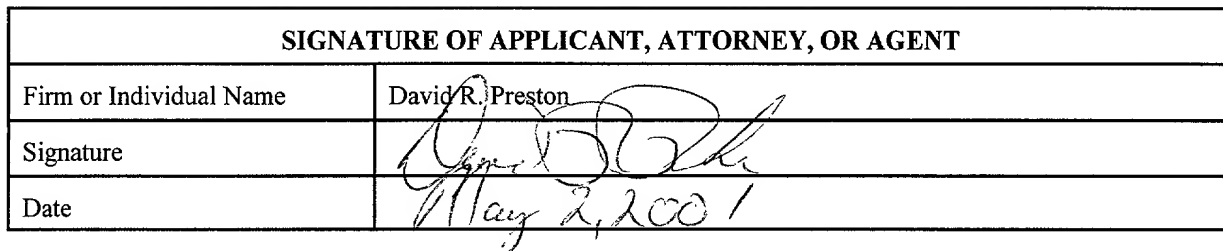 SIGNATURE OF APPLICANT, ATTORNEY, OR AGENT
Firm or Individual Name David R. Preston
Signature
Date May 2, 2001